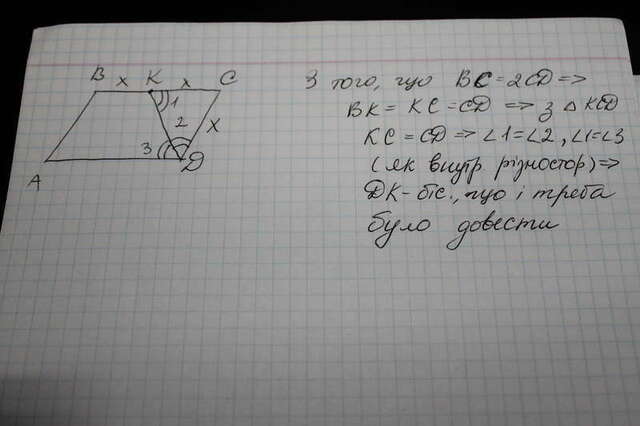 B x K x C
1
2
x
3
D
A
З того, що BC = 2CD =>
BK = KC = CD => з △ KCD
KC = CD => ∠1=∠2, ∠1=∠3
(як внутр. різностор) =>
DK - біс., що і треба
було довести